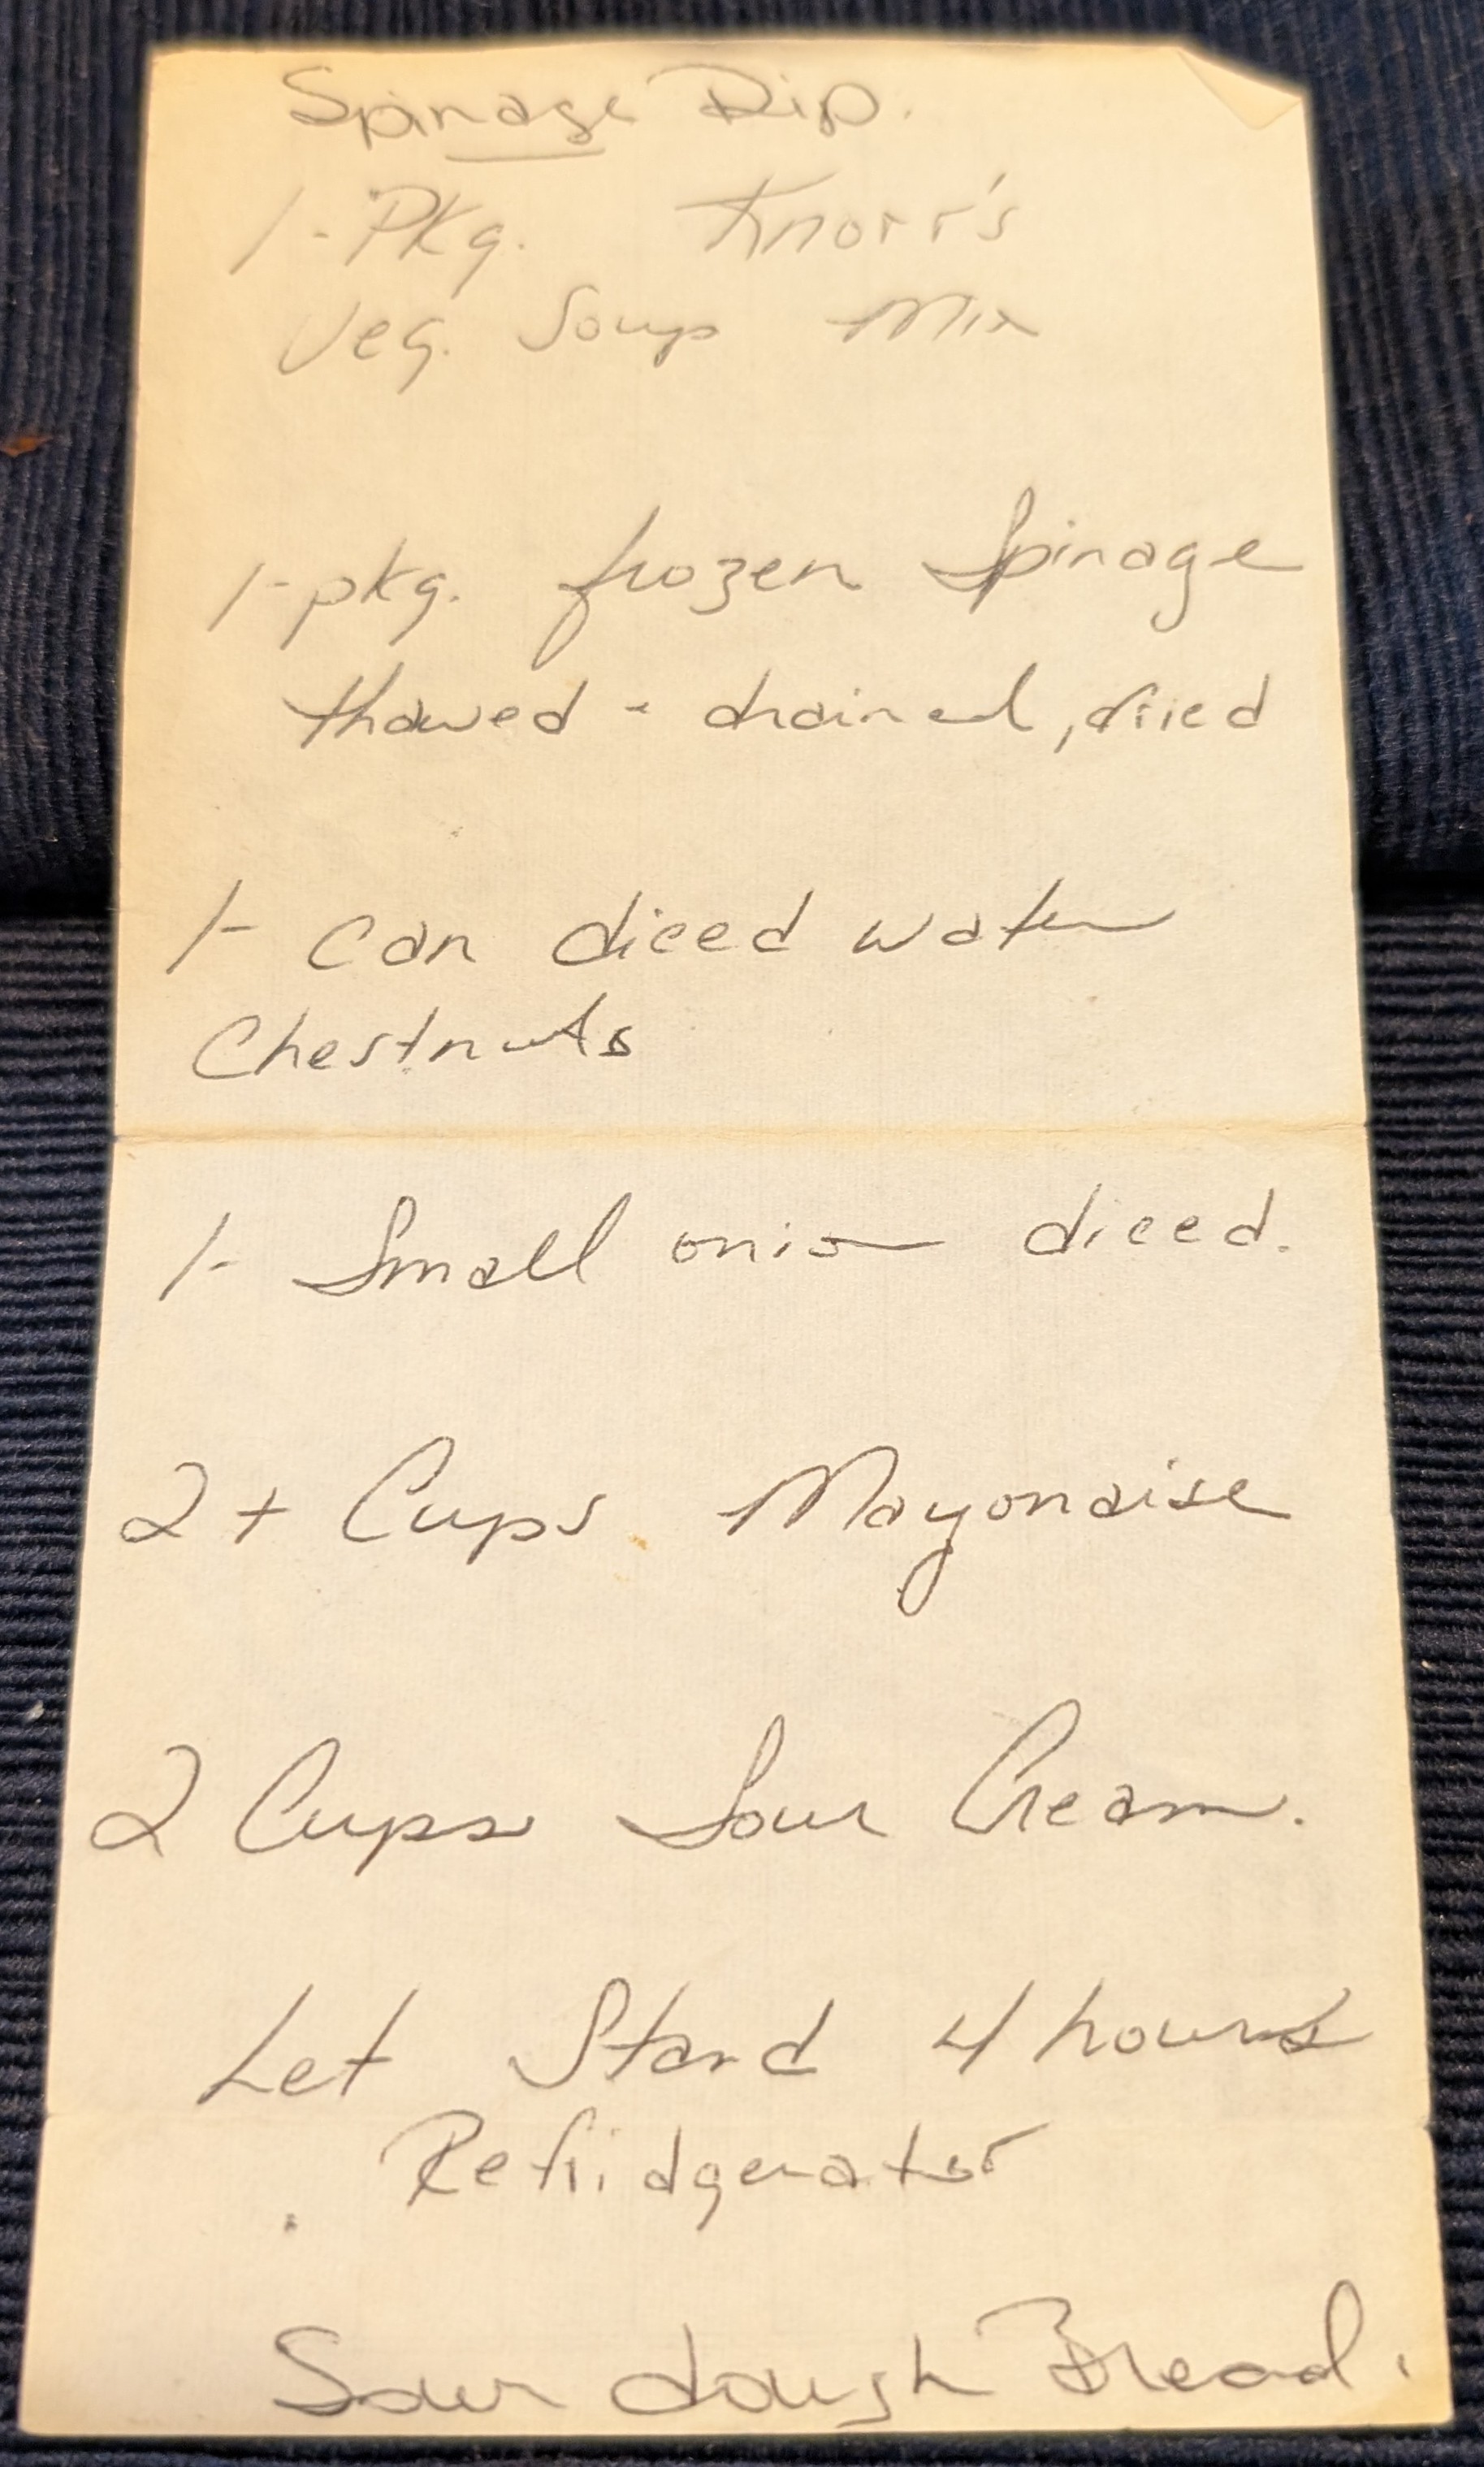 Spinage Dip.
1-Pkg. Knorr's
Veg. Soup Mix
1-pkg. frozen Spinage
thawed - drained, dried
1- Can diced water
Chestnuts
1- Small onion diced.
2+ Cups Mayonaise
2 Cups Sour Cream.
Let Stand 4 hours
Refridgerator
Sour dough Bread.